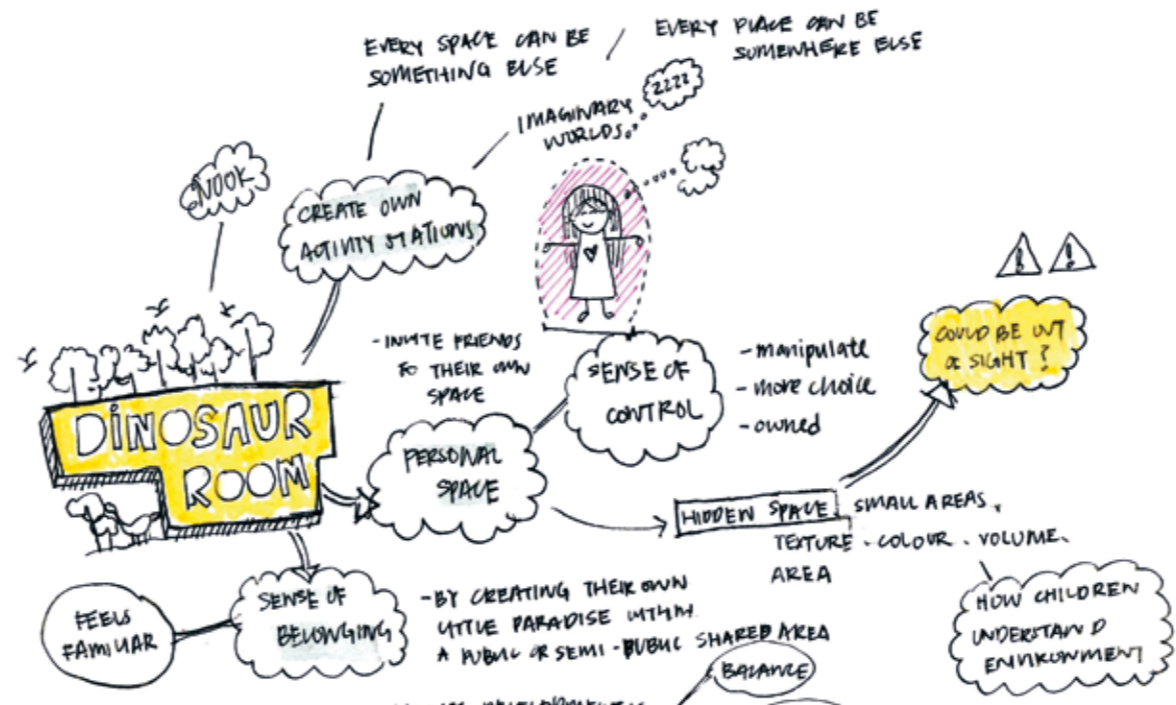 EVERY SPACE CAN BE
SOMETHING ELSE
/
EVERY PLACE CAN BE
SOMEWHERE ELSE
IMAGINARY
WORLDS
ZZZZ
NOOK
CREATE OWN
ACTIVITY STATIONS
DINOSAUR
ROOM
-INVITE FRIENDS
TO THEIR OWN
SPACE
SENSE OF
CONTROL
-manipulate
-more choice
-owned
! !
COULD BE OUT
OF SIGHT?
PERSONAL
SPACE
HIDDEN SPACE. SMALL AREAS.
TEXTURE . COLOUR . VOLUME.
AREA
HOW CHILDREN
UNDERSTAND
ENVIRONMENT
FEELS
FAMILIAR
SENSE OF
BELONGING
-BY CREATING THEIR OWN
LITTLE PARADISE WITHIN
A PUBLIC OR SEMI-PUBLIC SHARED AREA
BALANCE